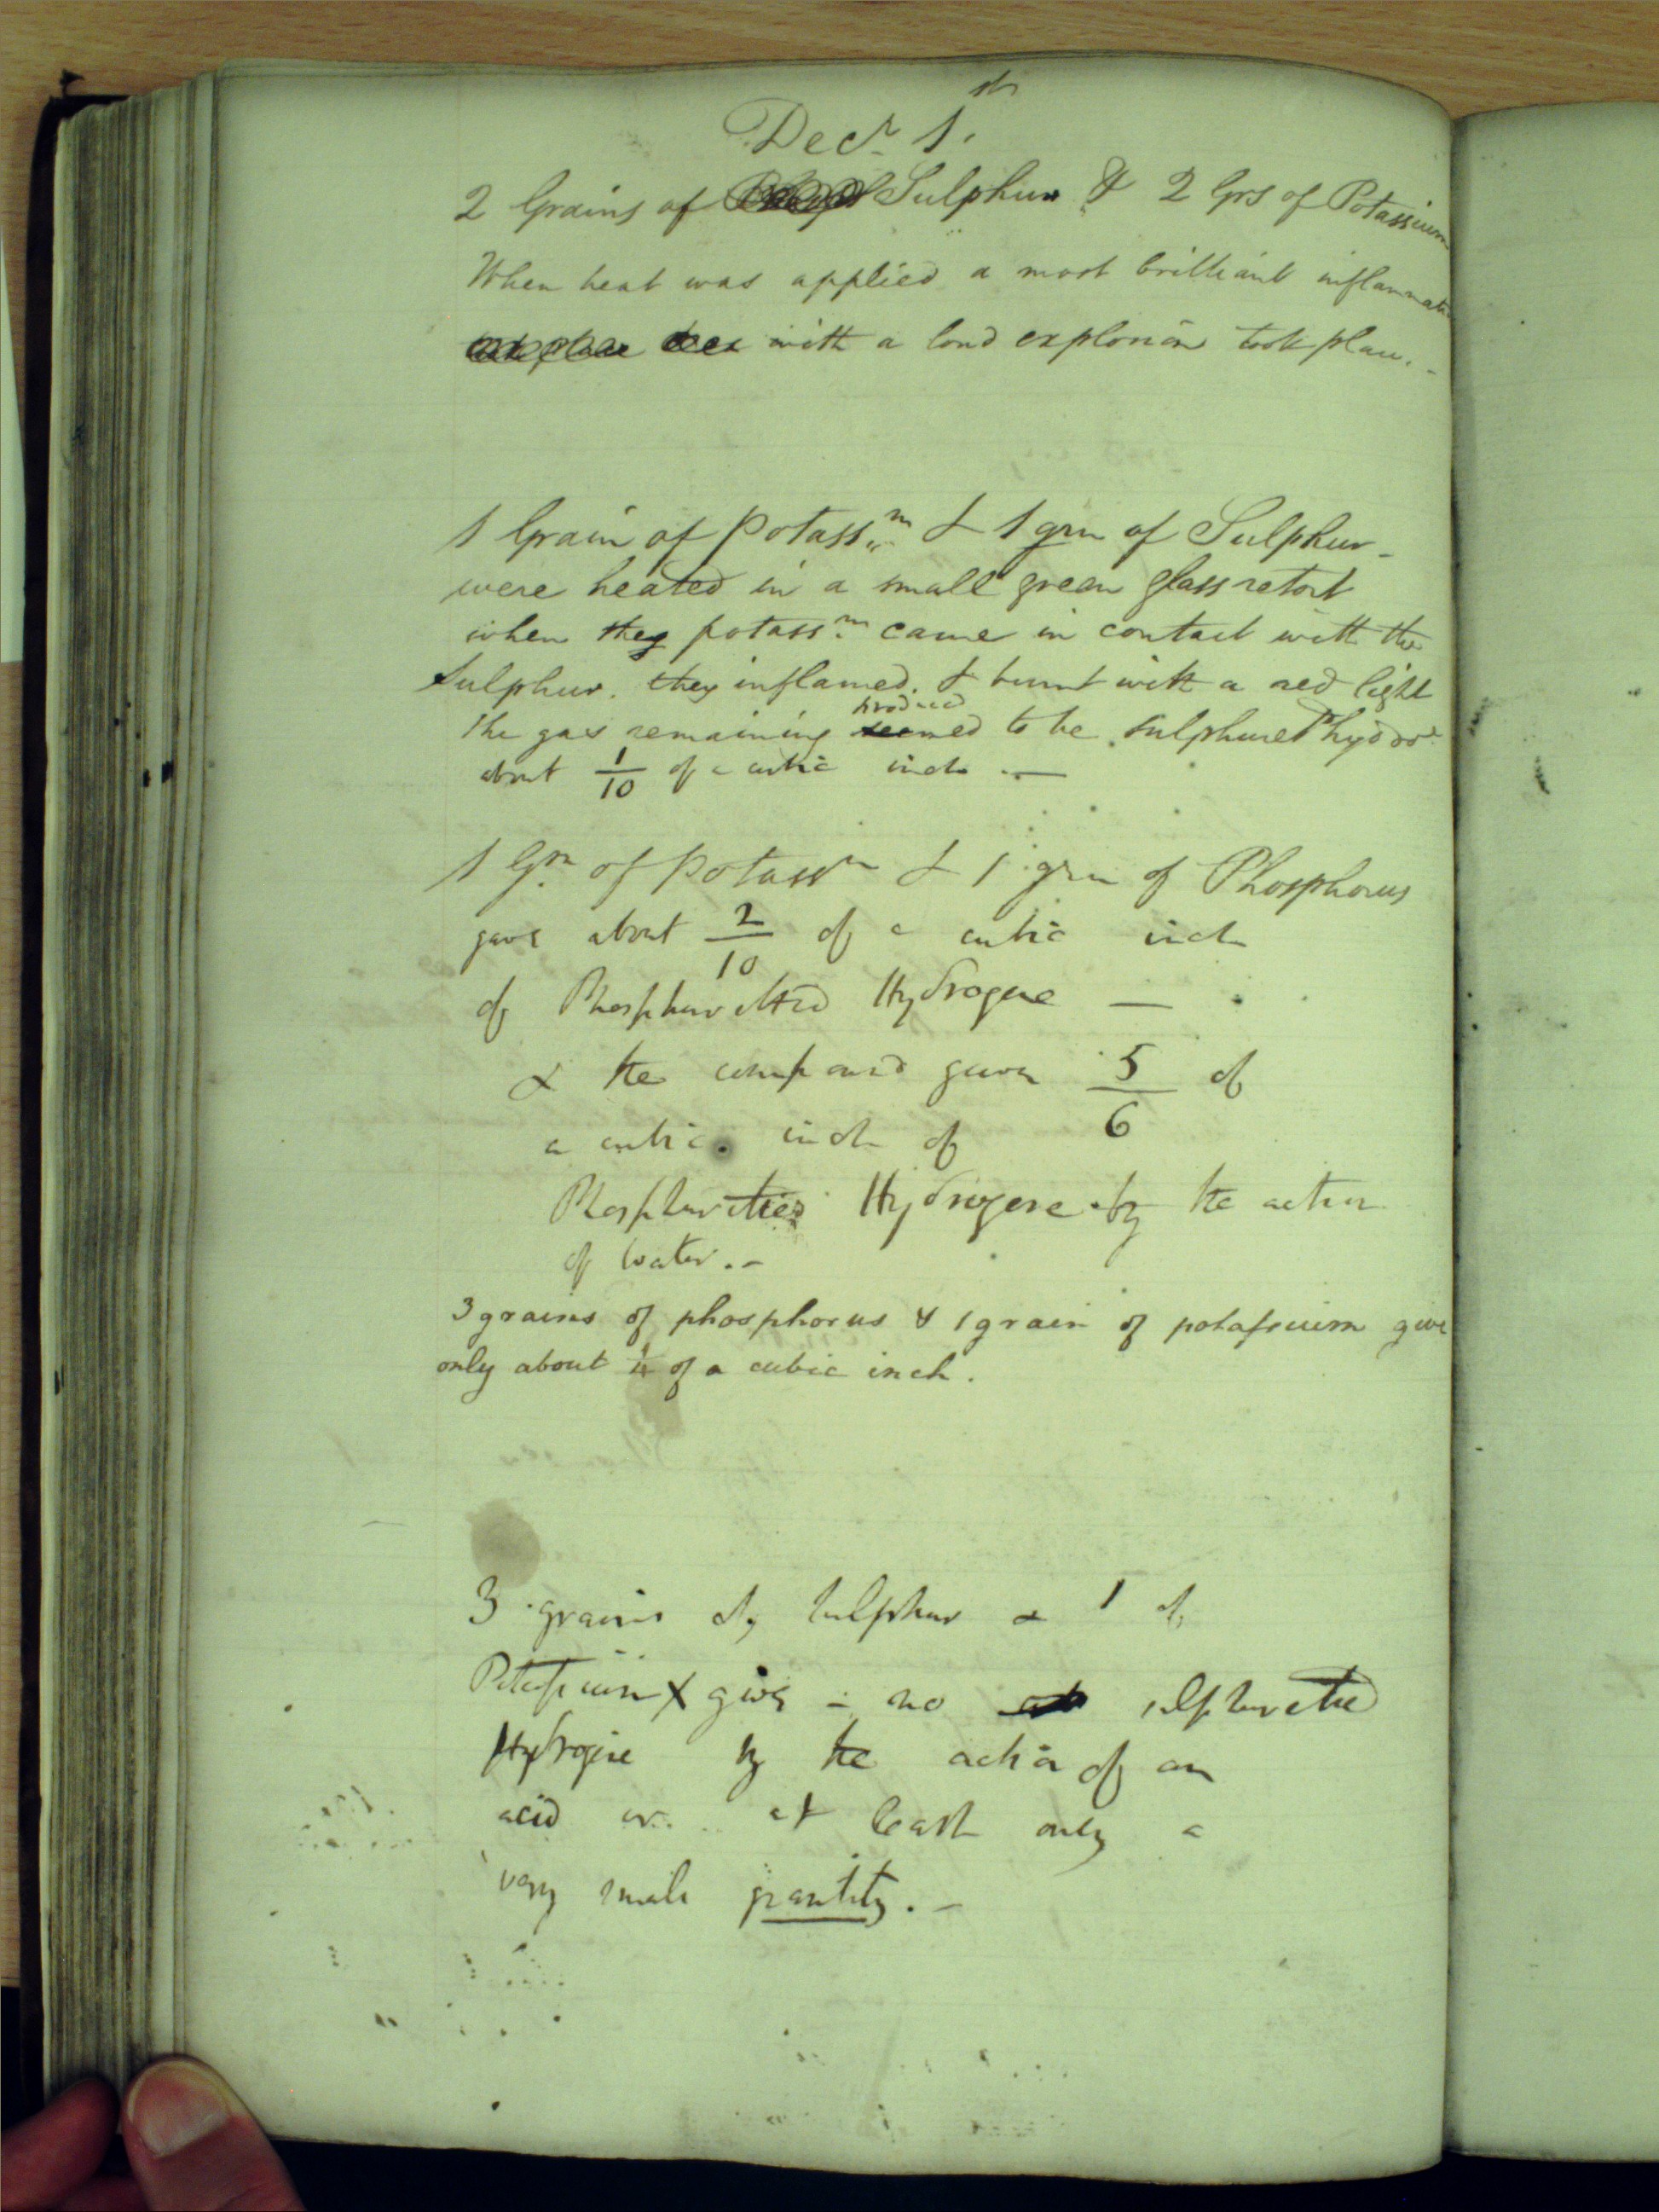 Decr. 1.st
2 Grains of Sulphur & 2 Grs of Potassium
When heat was applied a most brilliant inflammati
with a loud explosion took place. -
1 Grain of Potassm & 1 grn of Sulphur -
were heated in a small green glass retort
when they potassm came in contact with the
Sulphur. they inflamed. & burnt with a red light
produced
the gas remaining seemed to be sulphured hydro
about 1/10 of a cubic inch. —
1 Grn of Potassm & 1 grn of Phosphorus
gave about 2/10 of a cubic inch
of Phosphuretted Hydrogene —
& the compound given 5/6 of
a cubic inch of
Phosphuretted Hydrogene by the action
of water. -
3 grains of phosphorus & 1 grain of potassium give
only about 1/4 of a cubic inch.
3 grains of Sulphur & 1 of
Potassium X give - no sulphuretted
Hydrogene by the action of an
acid or at least only a
very small quantity. -